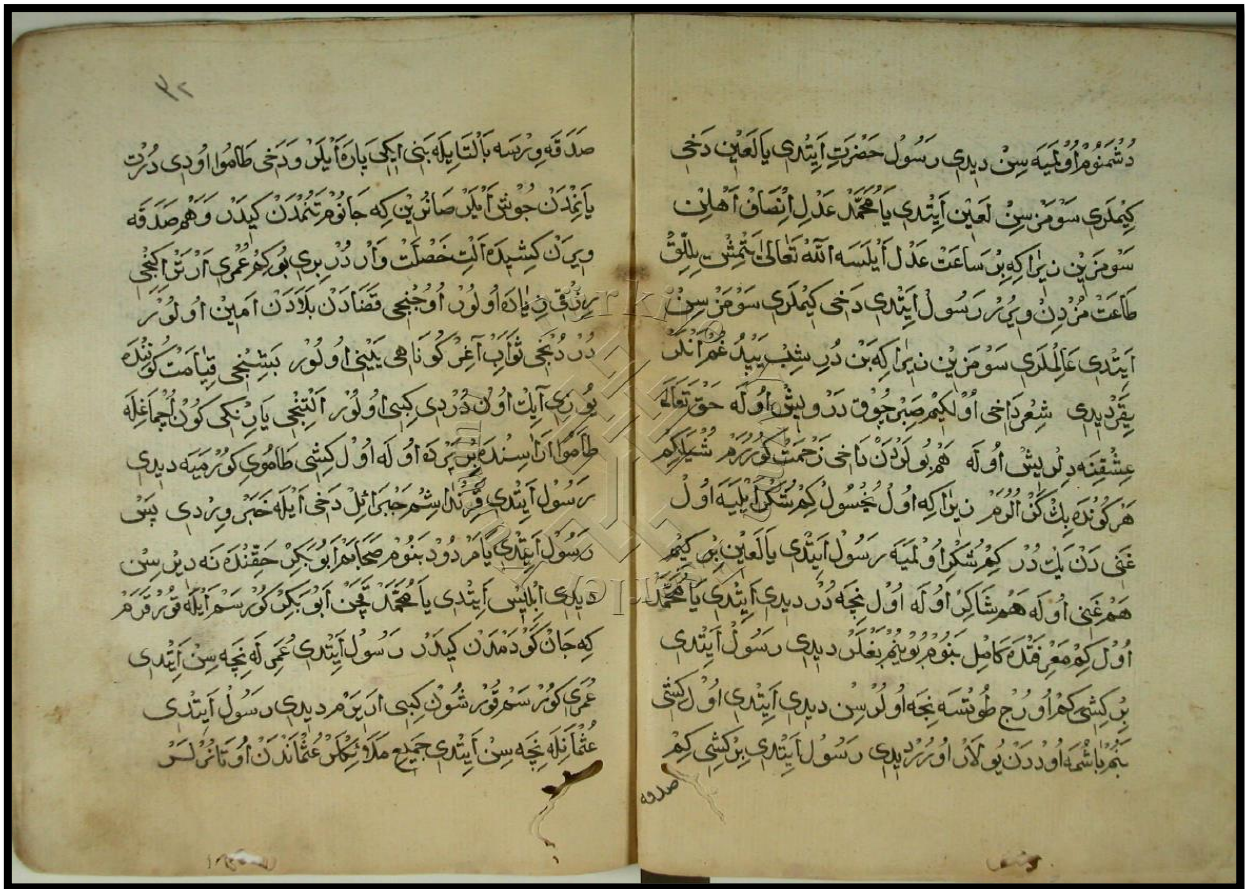 دشمنوم اولميه سن ديدى رسول حضرت ايتدى يا لعين دخى
كيملرى سومز سن لعين ايتدى يا محمد عدل انصاف اهلين
سومزين زيرا كه بر ساعت عدل ايلسه الله تعالى يتمش ييللق
طاعت مزدن ويرر رسول ايتدى دخى كيملرى سومز سن
ايتدى عالملرى سومزين زيرا كه بن در
يقر ديدى شعر داخى اولكيم صبر چوق درويش اوله حق تعاله
عشقنه دلريش اوله هم بولردن داخى زحمت كوررم شيله كم
هر كونده بك كز الورم زيرا كه اول يخسول كم شكر ايليه اول
غنى دن يك در كيم شكر اولميه رسول ايتدى يا لعين بر كيم
هم غنى اوله هم شاكر اوله اول نجه در ديدى ايتدى يا محمد
اول كم معرفتده كامل بنوم بوينم بغلر ديدى رسول ايتدى
بر كشى كم اورج طوتسه نجه اولرسن ديدى ايتدى اول كشى
بنم باشمه اوددن يولار اورر ديدى رسول ايتدى بر كشى كم
صدقه
٣٢
صدقه ويرسه بالتا يله بنى ايكى پاره ايلر و دخى طامو اودى درت
يانمدن جوش ايلر صانورين كه جانوم تنمدن كيدر و هم صدقه
ويرن كشيده الت خصلت واردر برى بو كم عمرى ارتر ايكنجى
رزق زياده اولور اوچنجى قضادن بلادن امين اولور
دردنجى ثواب آغر كوناهى يينى اولور بشنجى قيامت كوننده
يوزى آيك اون دردى كبى اولور التنجى يارنكى كون اچماغله
طامو اراسنده بر پرده اوله اول كشى طاموى كورميه ديدى
رسول ايتدى قرنداشم جبرائل دخى ايله خبر ويردى پس
رسول ايتدى يا مردود بنوم صحابم ابو بكر حقنده نه ديرسن
ديدى ابليس ايتدى يا محمد قچن ابو بكر كورسم ايله قورقرم
كه جان كودمدن كيدر رسول ايتدى عمرله نجه سن ايتدى
عمرى كورسم قورشون كبى اريرم ديدى رسول ايتدى
عثمانله نجه سن ايتدى جميع ملائكلر عثماندن اوتانرلر